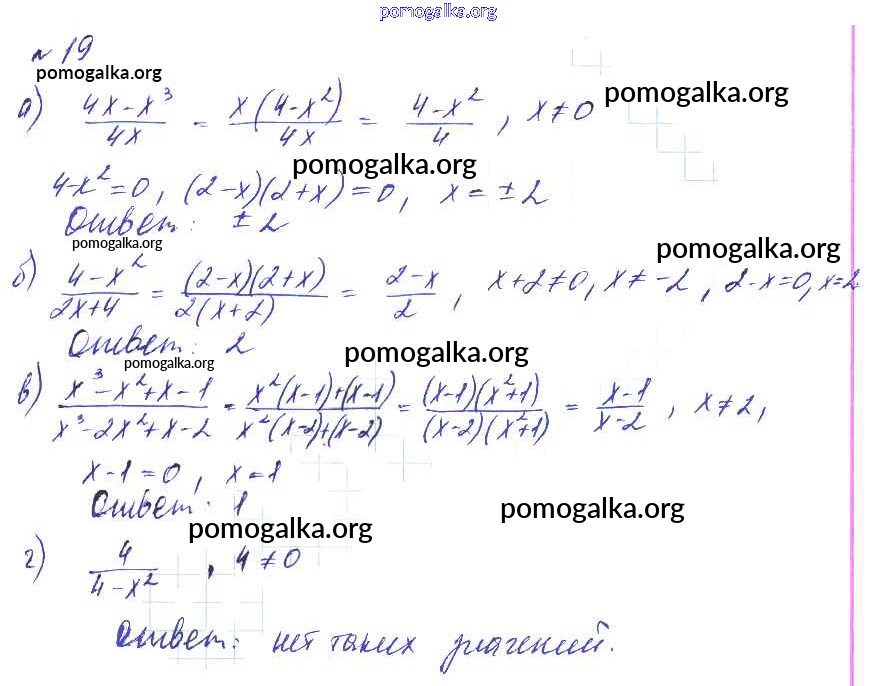 pomogalka.org
№ 19
pomogalka.org
а) (4x - x³)/(4x) = (x(4 - x²))/(4x) = (4 - x²)/4, x ≠ 0
pomogalka.org
pomogalka.org
4 - x² = 0, (2 - x)(2 + x) = 0, x = ± 2
Ответ: ± 2
pomogalka.org
pomogalka.org
б) (4 - x²)/(2x + 4) = ((2 - x)(2 + x))/(2(x + 2)) = (2 - x)/2, x + 2 ≠ 0, x ≠ -2, 2 - x = 0, x = 2
Ответ: 2
pomogalka.org
pomogalka.org
в) (x³ - x² + x - 1)/(x³ - 2x² + x - 2) = (x²(x - 1) + (x - 1))/(x²(x - 2) + (x - 2)) = ((x - 1)(x² + 1))/((x - 2)(x² + 1)) = (x - 1)/(x - 2), x ≠ 2,
x - 1 = 0, x = 1
Ответ: 1
pomogalka.org
pomogalka.org
г) 4/(4 - x²), 4 ≠ 0
Ответ: нет таких значений.